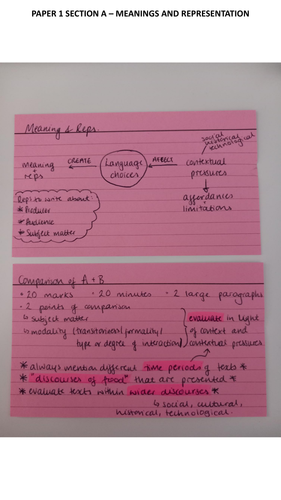 PAPER 1 SECTION A – MEANINGS AND REPRESENTATION
Meaning & Reps.
social
historical
technological
meaning CREATE Language AFFECT contextual
reps choices pressures
Reps to write about: affordances
* Producer limitations
* Audience
* Subject matter
Comparison of A + B
• 20 marks • 20 minutes • 2 large paragraphs
• 2 points of comparison
↳ subject matter evaluate in light
↳ modality (transitional/formality/ of context and
type or degree of interaction) contextual pressures
* always mention different time periods of texts *
* "discourses of food" that are presented *
* evaluate texts within wider discourses *
↳ social, cultural,
historical, technological.